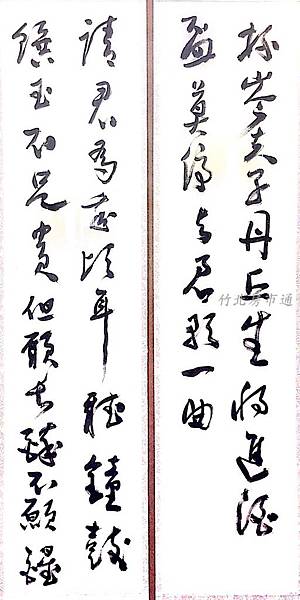 杯岑夫子丹丘生將進酒
盃莫停与君歌一曲
請君為我傾耳聽鐘鼓
饌玉不足貴但願長醉不願醒
竹北房市通